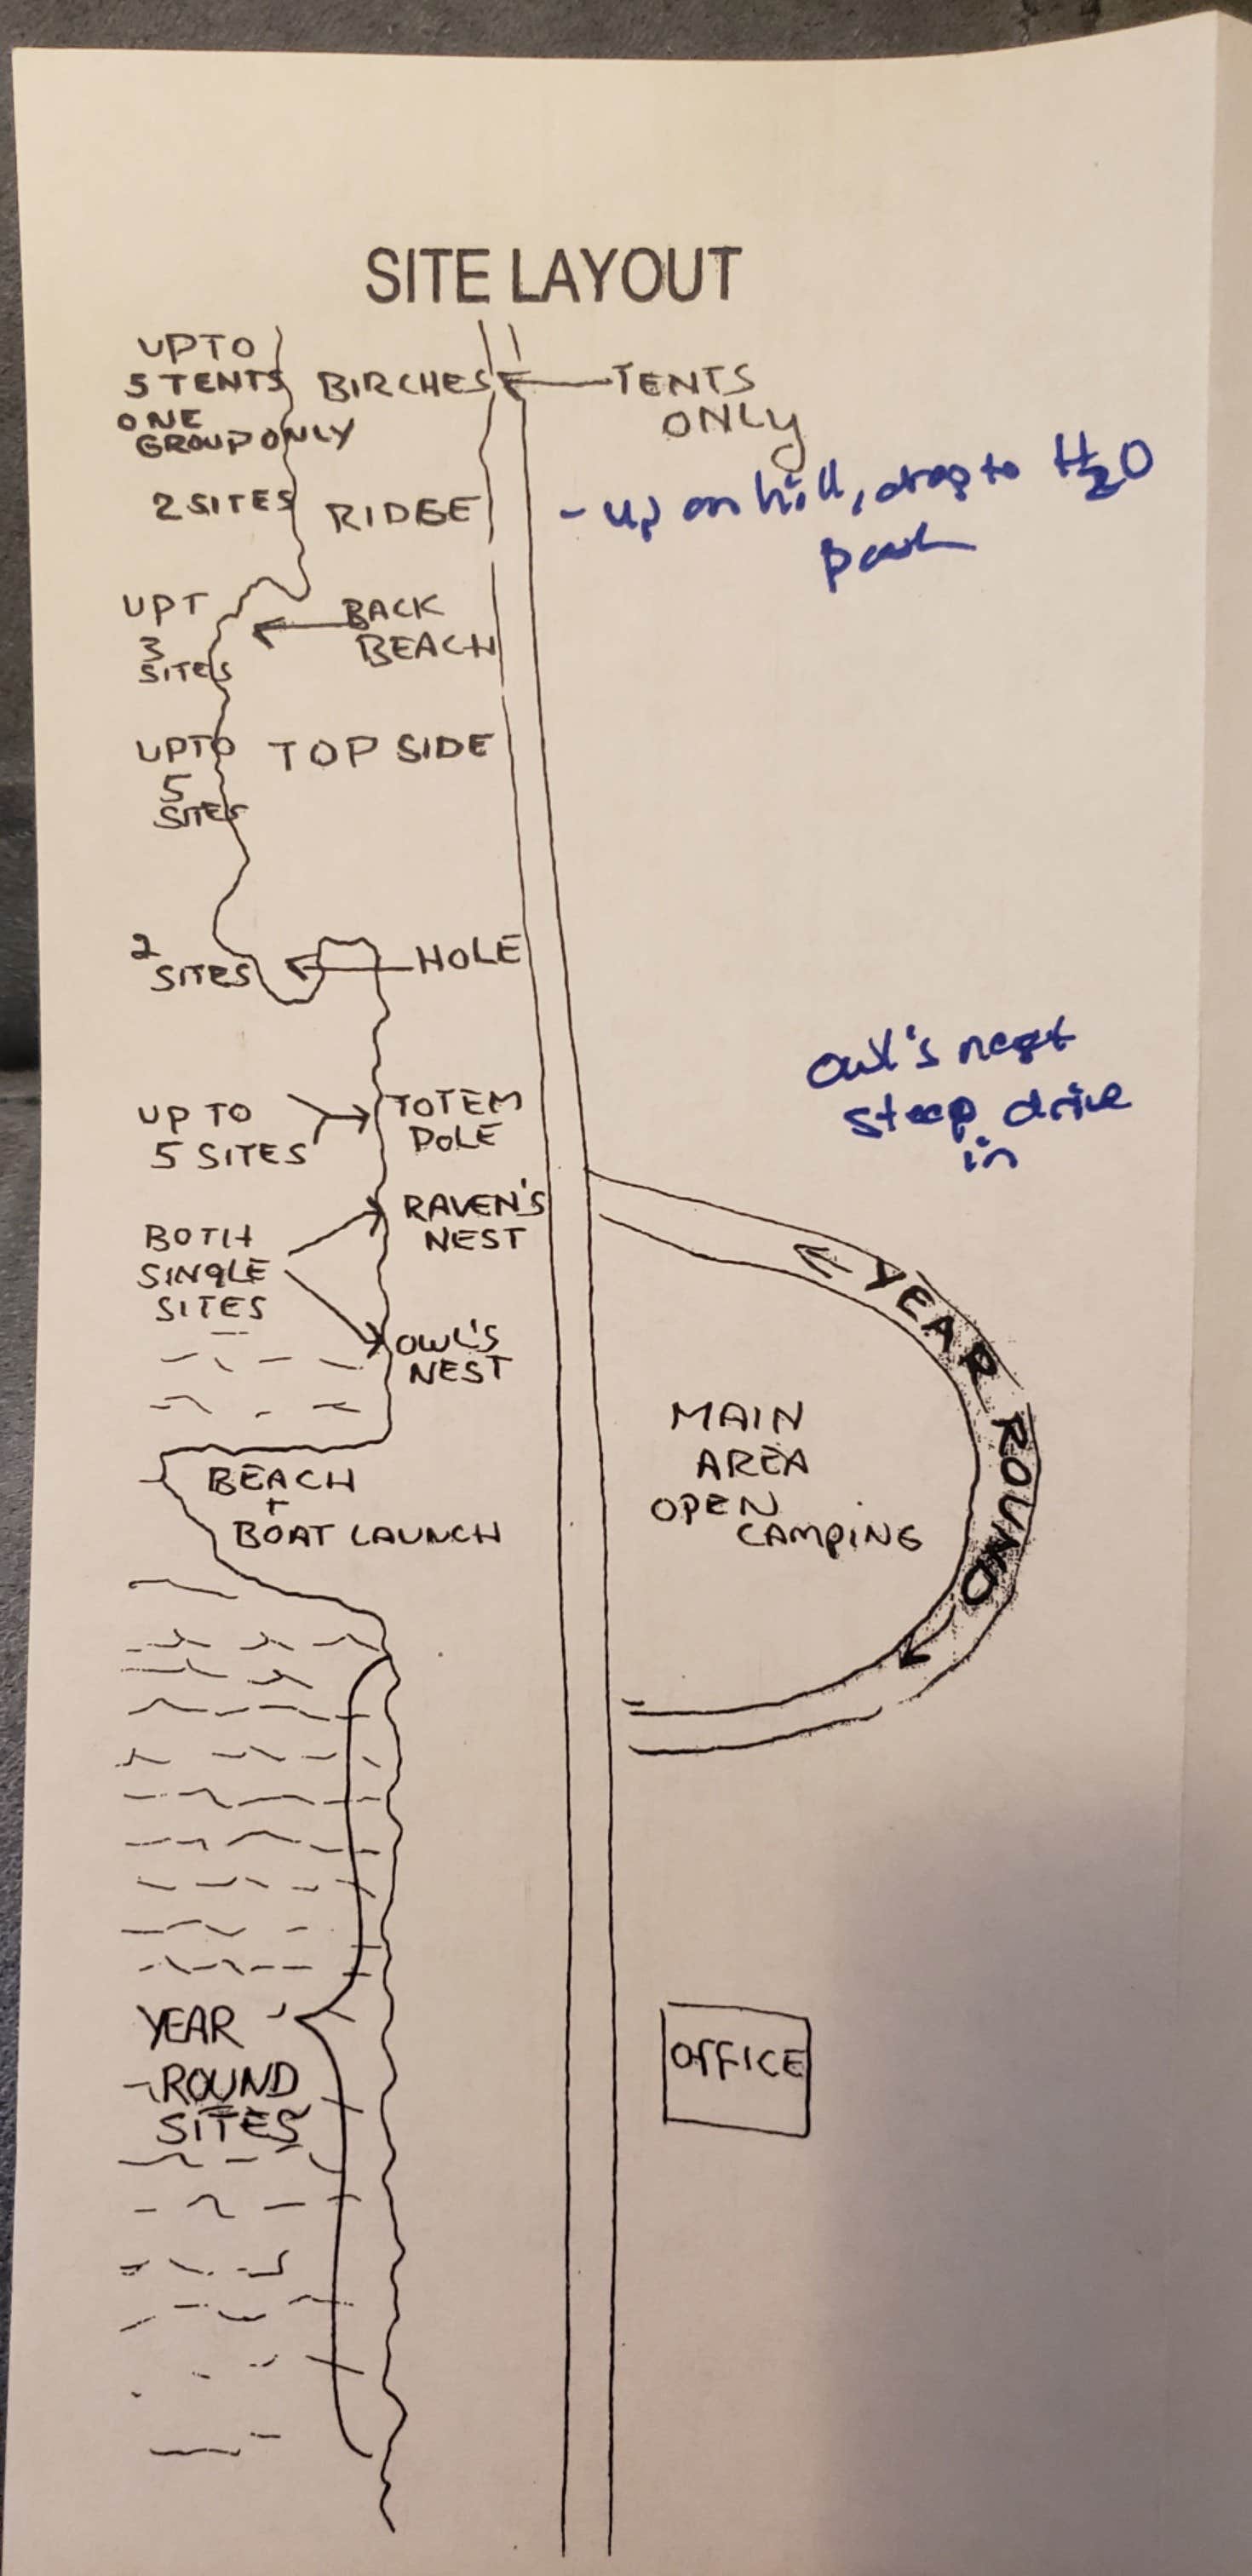 SITE LAYOUT
UPTO
5 TENTS
ONE
GROUP ONLY
BIRCHES
TENTS
ONLY
2 SITES
RIDGE
- up on hill, drop to H2O
UPT
3
SITES
BACK
BEACH
UPTO
5
SITES
TOP SIDE
2
SITES
HOLE
Owl's nest
steep drive
in
UP TO
5 SITES
TOTEM
POLE
RAVEN'S
NEST
BOTH
SINGLE
SITES
OWL'S
NEST
YEAR ROUND
MAIN
AREA
OPEN
CAMPING
BEACH
+
BOAT LAUNCH
YEAR
ROUND
SITES
OFFICE